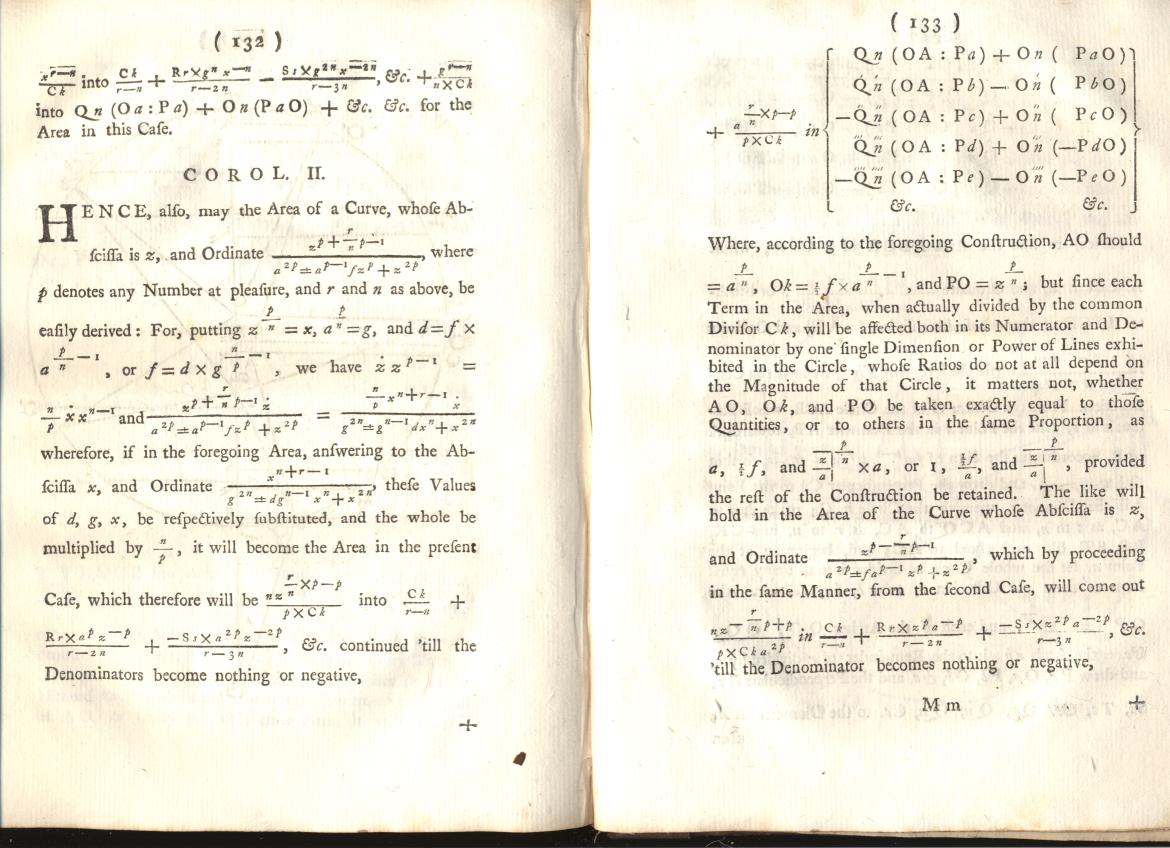 ( 132 )
x^{r—n}/Ck into Ck/r—n + Rr×g^n x^{—n}/r—2n — Ss×g^{2n}x^{—2n}/r—3n, &c. + g^{r—n}/n×Ck
into Qn (Oa : Pa) + On (PaO) + &c. &c. for the
Area in this Caſe.
COROL. II.
HENCE, alſo, may the Area of a Curve, whoſe Ab-
ſciſſa is z, and Ordinate z^{p + r/n p—1}/a^{2p} ± a^{p—1} f z^p + z^{2p}, where
p denotes any Number at pleaſure, and r and n as above, be
eaſily derived: For, putting z^{p/n} = x, a^{p/n} = g, and d = f ×
a^{p/n —1}, or f = d × g^{n/p —1}, we have ż z^{p—1} =
n/p ẋ x^{n—1} and z^{p + r/n p—1} ż/a^{2p} ± a^{p—1} f z^p + z^{2p} = n/p x^{n+r—1} ẋ/g^{2n} ± g^{n—1} d x^n + x^{2n}
wherefore, if in the foregoing Area, anſwering to the Ab-
ſciſſa x, and Ordinate x^{n+r—1}/g^{2n} ± d g^{n—1} x^n + x^{2n}, theſe Values
of d, g, x, be reſpectively ſubſtituted, and the whole be
multiplied by n/p, it will become the Area in the preſent
Caſe, which therefore will be n z^{r/n ×p—p}/p×Ck into Ck/r—n +
Rr×a^p z^{—p}/r—2n + —Ss×a^{2p} z^{—2p}/r—3n, &c. continued 'till the
Denominators become nothing or negative,
+
( 133 )
+ a^{r/n ×p—p}/p×Ck in
Qn (OA : Pa) + On ( PaO)
Qń (OA : Pb) — Oń ( PbO)
—Qn̋ (OA : Pc) + On̋ ( PcO)
Qn‴ (OA : Pd) + On‴ (—PdO)
—Qn⁗ (OA : Pe) — On⁗ (—PeO)
&c. &c.
Where, according to the foregoing Conſtruction, AO ſhould
= a^{p/n}, Ok = ½ f × a^{p/n —1}, and PO = z^{p/n}; but ſince each
Term in the Area, when actually divided by the common
Diviſor Ck, will be affected both in its Numerator and De-
nominator by one ſingle Dimenſion or Power of Lines exhi-
bited in the Circle, whoſe Ratios do not at all depend on
the Magnitude of that Circle, it matters not, whether
AO, Ok, and PO be taken exactly equal to thoſe
Quantities, or to others in the ſame Proportion, as
a, ½f, and z/a|^{p/n} × a, or 1, ½f/a, and z/a|^{p/n}, provided
the reſt of the Conſtruction be retained. The like will
hold in the Area of the Curve whoſe Abſciſſa is z,
and Ordinate z^{p — r/n p—1}/a^{2p} ± f a^{p—1} z^p + z^{2p}, which by proceeding
in the ſame Manner, from the ſecond Caſe, will come out
nz^{— r/n p+p}/p×Ck a^{2p} in Ck/r—n + Rr×z^p a^{—p}/r—2n + —Ss×z^{2p} a^{—2p}/r—3n, &c.
'till the Denominator becomes nothing or negative,
M m +